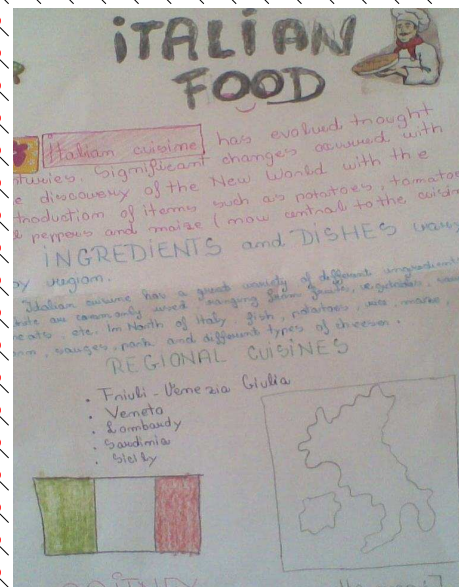 iTALiAN
FOOD
Italian cuisine, has evolved trought
turies. Significant changes occurred with
e discovery of the New World with the
troduction of items such as potatoes, tomatoe
l peppers and maize (now central to the cuisin
iNGREDiENTS and DiSHES vary
by region.
Italian cuisine has a great variety of different ingredients
are commonly used, ranging from fruits, vegetables,
eats, etc. In North of Italy, fish, potatoes, rice, maize,
sauges, pork and different types of cheeses.
REGIONAL CUiSiNES
. Friuli - Venezia Giulia
. Veneto
. Lombardy
. Sardinia
. Sicily